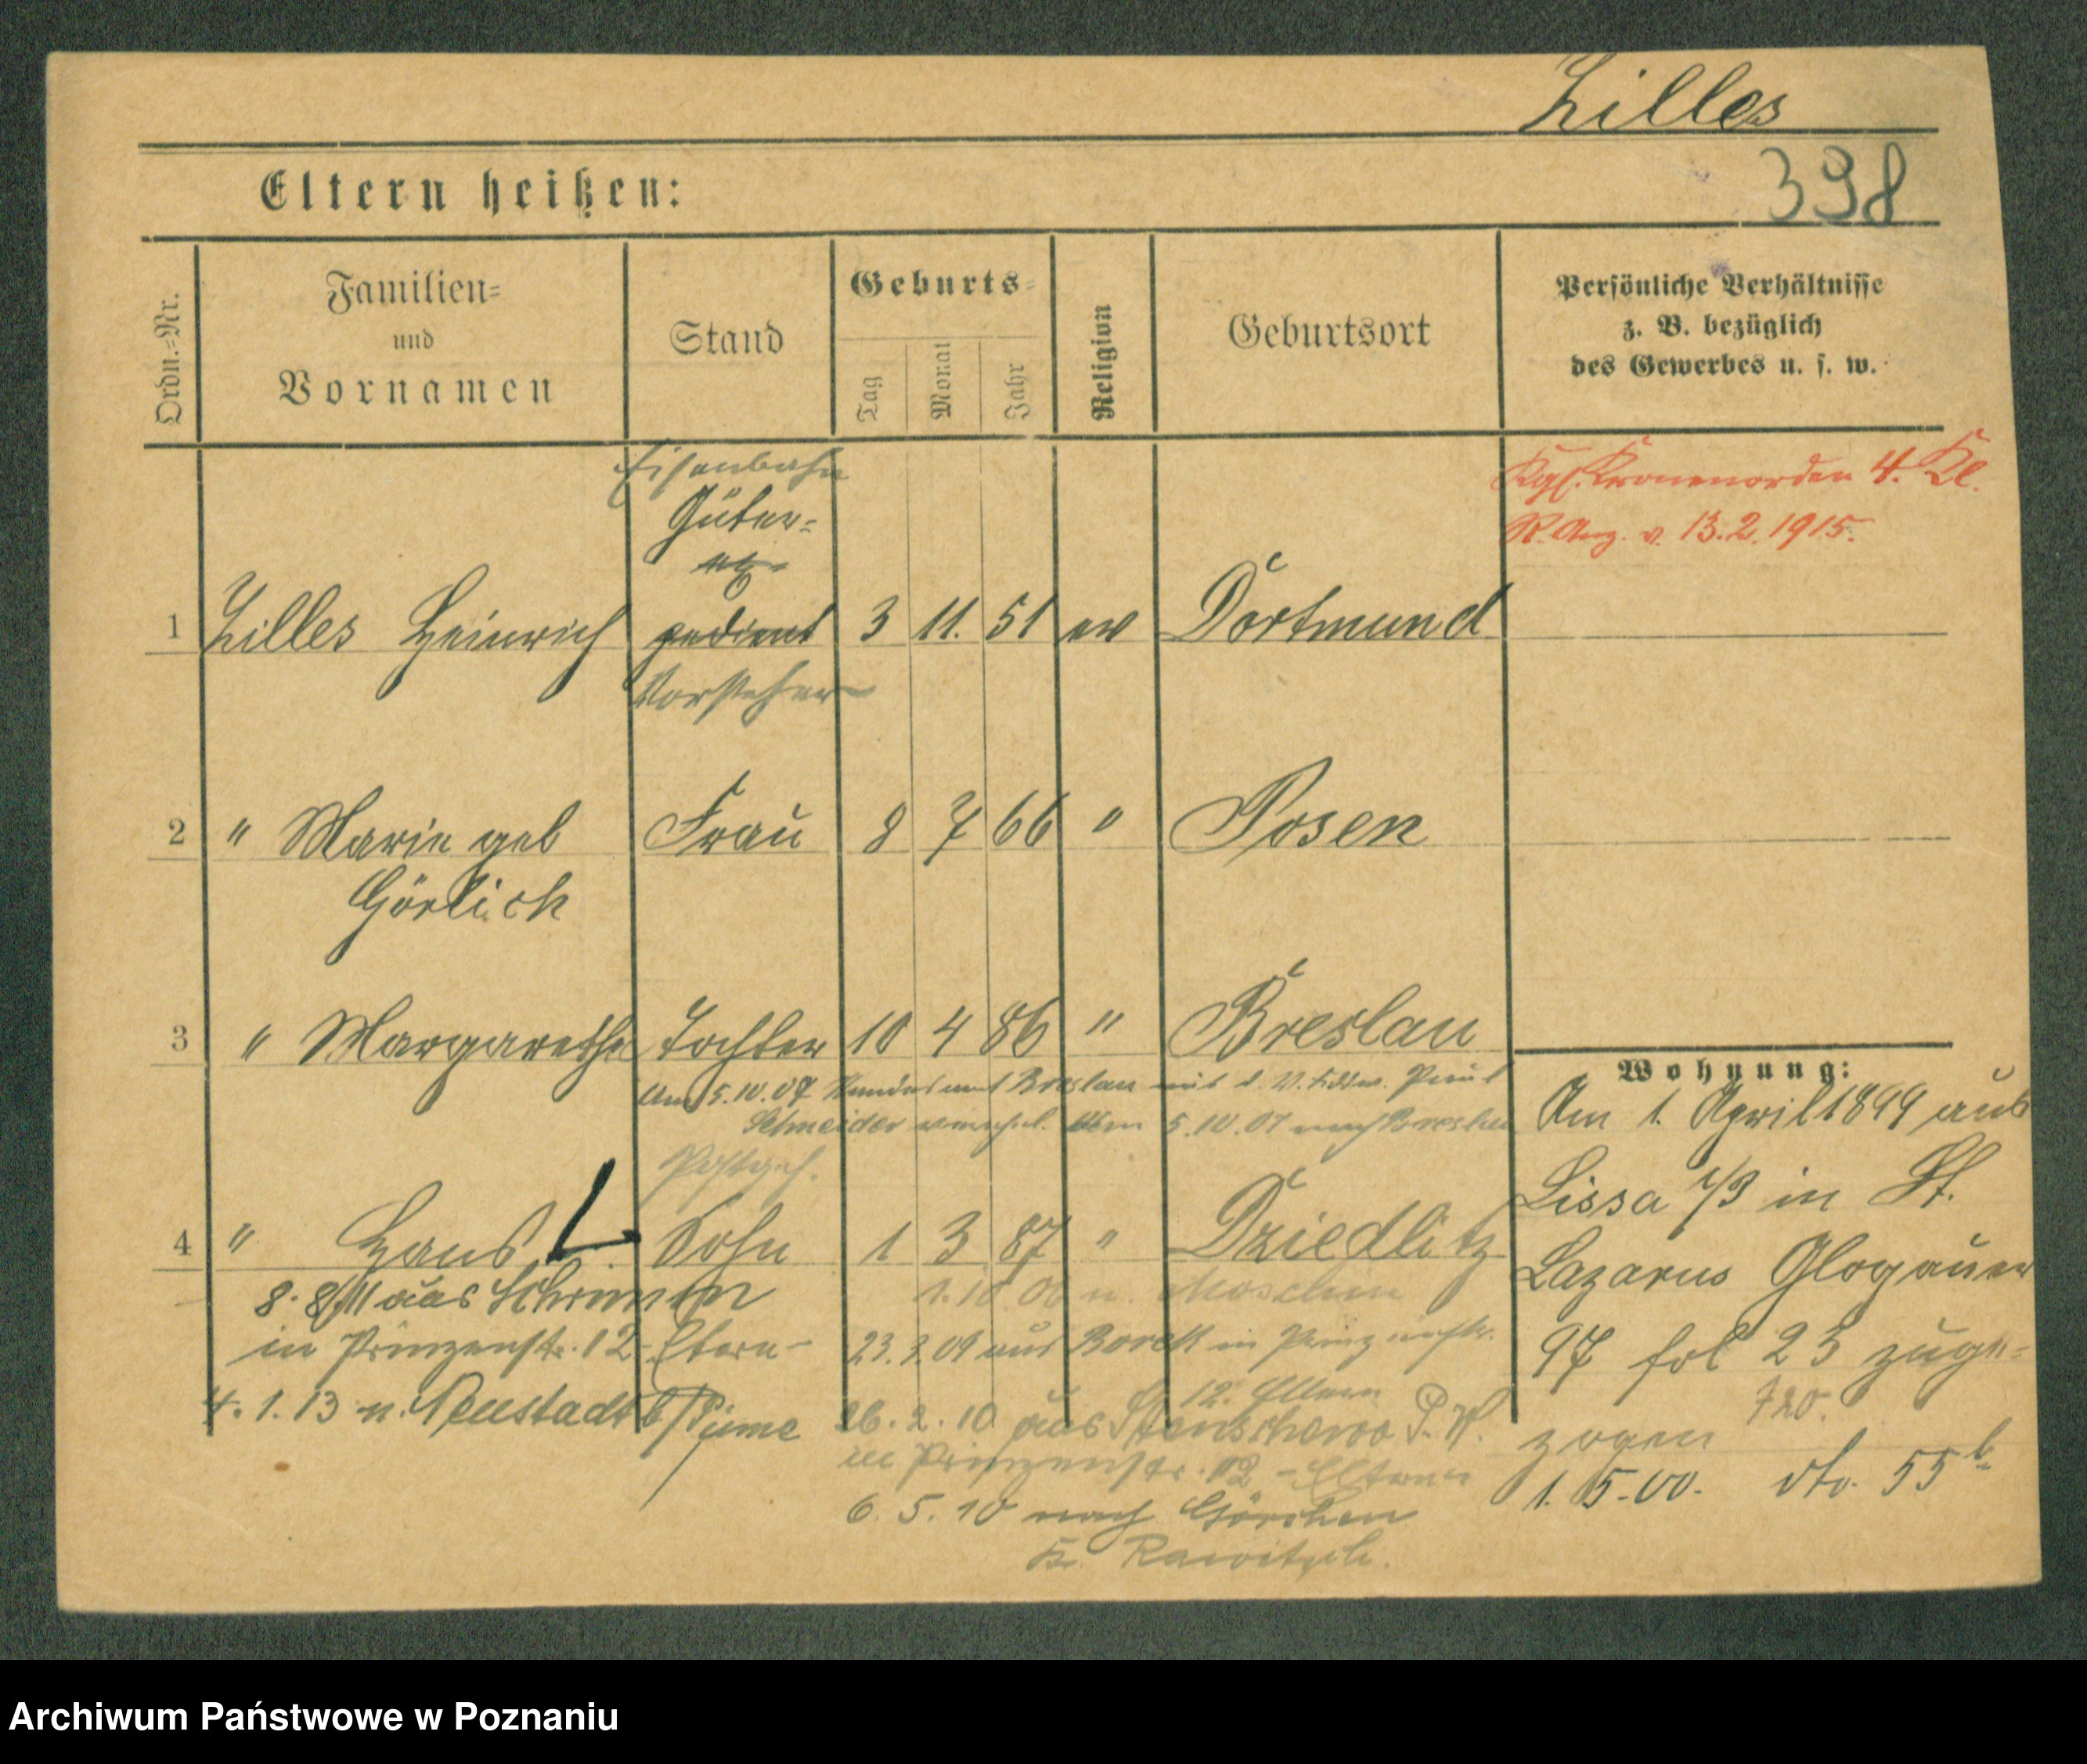 Zilles
398
Eltern heißen:
Ordn.-Nr.
Familien-
und
Vornamen
Stand
Geburts-
Tag
Monat
Jahr
Religion
Geburtsort
Persönliche Verhältnisse
z. B. bezüglich
des Gewerbes u. s. w.
Kgl. Kronenorden 4. Kl.
R. Anz. v. 13.2.1915.
Eisenbahn
Güter-
ex-
1 Zilles Heinrich pedient 3 11. 51 ev Dortmund
Vorsteher
2 " Marie geb Frau 8 7 66 " Posen
Görlich
3 " Margarethe Tochter 10 4 86 " Breslau
Am 5.10.07 Standesamt Breslau mit d. Paul
Schneider 5.10.07 nach Breslau
Postgeh.
4 " Hans Sohn 1 3 87 " Dziedlitz
8.8.11 aus Schrimm
in Prinzenstr. 12 - Eltern -
4.1.13 n. Neustadt b/Pinne
1.10.06 n. Moschin
23.3.09 aus Borek in Prinzenstr.
12. Eltern
26.2.10 aus Stenschewo P. W.
in Prinzenstr. 12 - Eltern
6.5.10 nach Görchen
Kr. Rawitsch.
Wohnung:
Am 1. April 1899 aus
Lissa i/P in St.
Lazarus Glogauer
97 fol 23 zuge-
zogen 720.
1.5.00. dto. 55 b
Archiwum Państwowe w Poznaniu